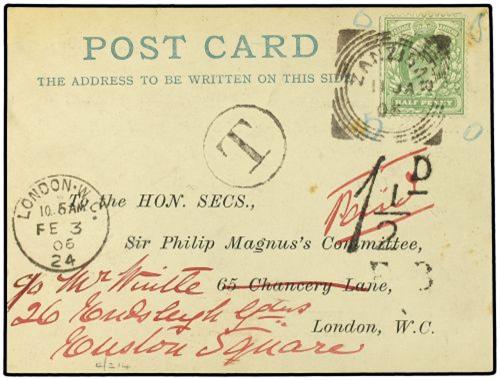 POST CARD
THE ADDRESS TO BE WRITTEN ON THIS SIDE
ZANZIBAR
JA
06
HALF PENNY
T
LONDON·W.C.
10.15AM
FE 3
06
24
To the HON. SECS.,
1½D
Sir Philip Magnus's Committee,
c/o Mr Wintle
65 Chancery Lane,
26 Endsleigh Gdns
London, W.C.
Euston Square